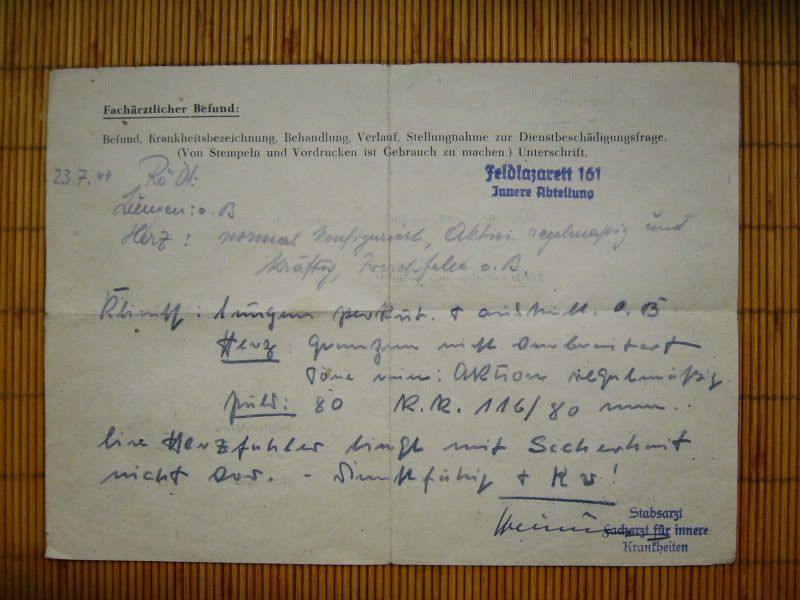 Fachärztlicher Befund:
Befund, Krankheitsbezeichnung, Behandlung, Verlauf, Stellungnahme zur Dienstbeschädigungsfrage.
(Von Stempeln und Vordrucken ist Gebrauch zu machen.) Unterschrift.
23.7.44 Rö Dl:
Feldlazarett 161
Innere Abteilung
Lungen: o. B
Herz: normal konfiguriert, Aktion regelmäßig und
kräftig, o. B.
Klinisch: Lungen perkut. + auskult. o. B
Herz: Grenzen nicht verbreitert
Töne rein: Aktion regelmäßig.
Puls: 80 R.R. 116/80 mm.
Ein Herzfehler liegt mit Sicherheit
nicht vor. - Dienstfähig + Kv!
Stabsarzt
Facharzt für innere
Krankheiten